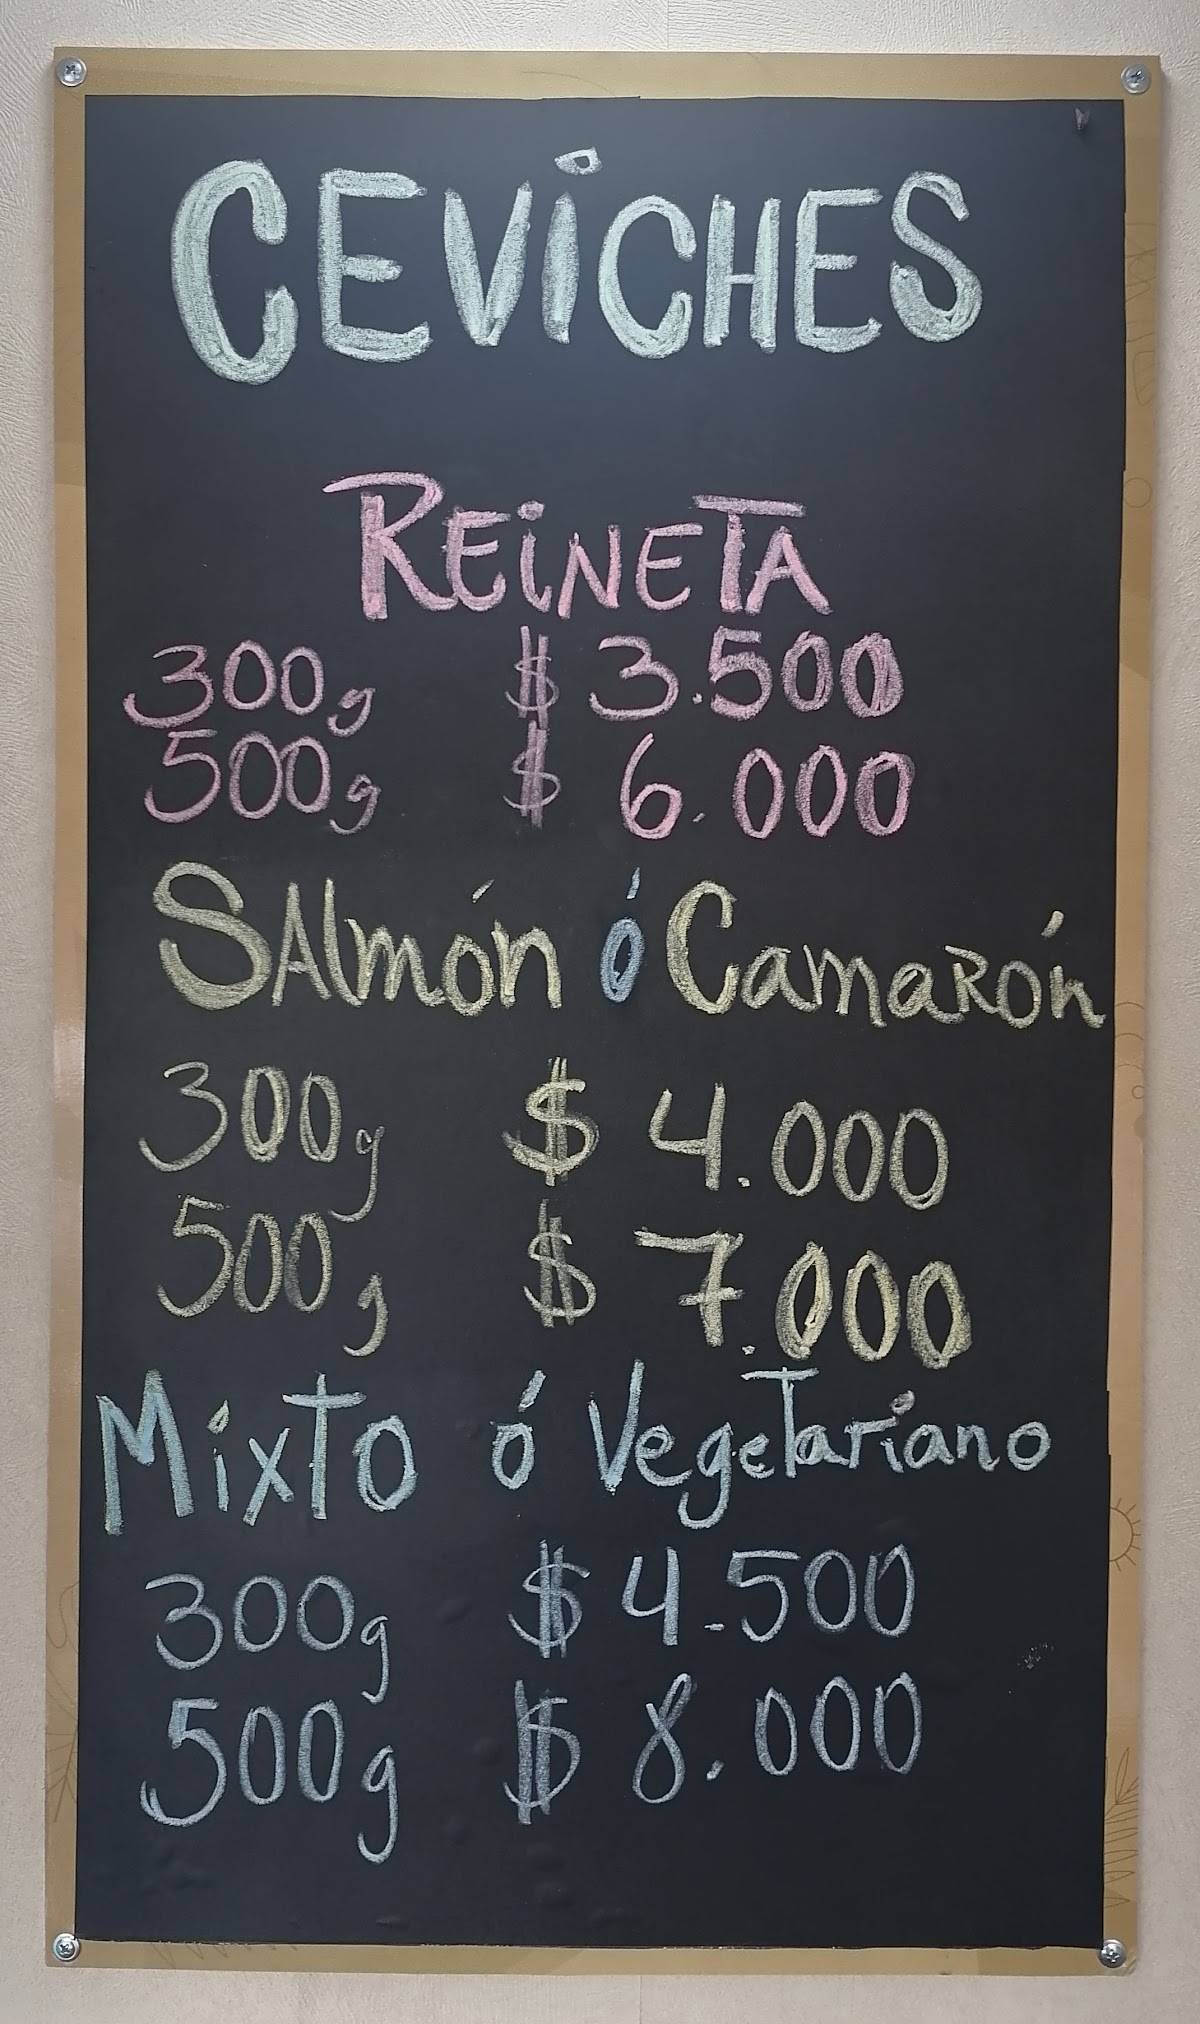 CEViCHES
REiNETA
300g $ 3.500
500g $ 6.000
SAlmón ó CamaRón
300g $ 4.000
500g $ 7.000
MixTo ó VegeTariano
300g $ 4.500
500g $ 8.000